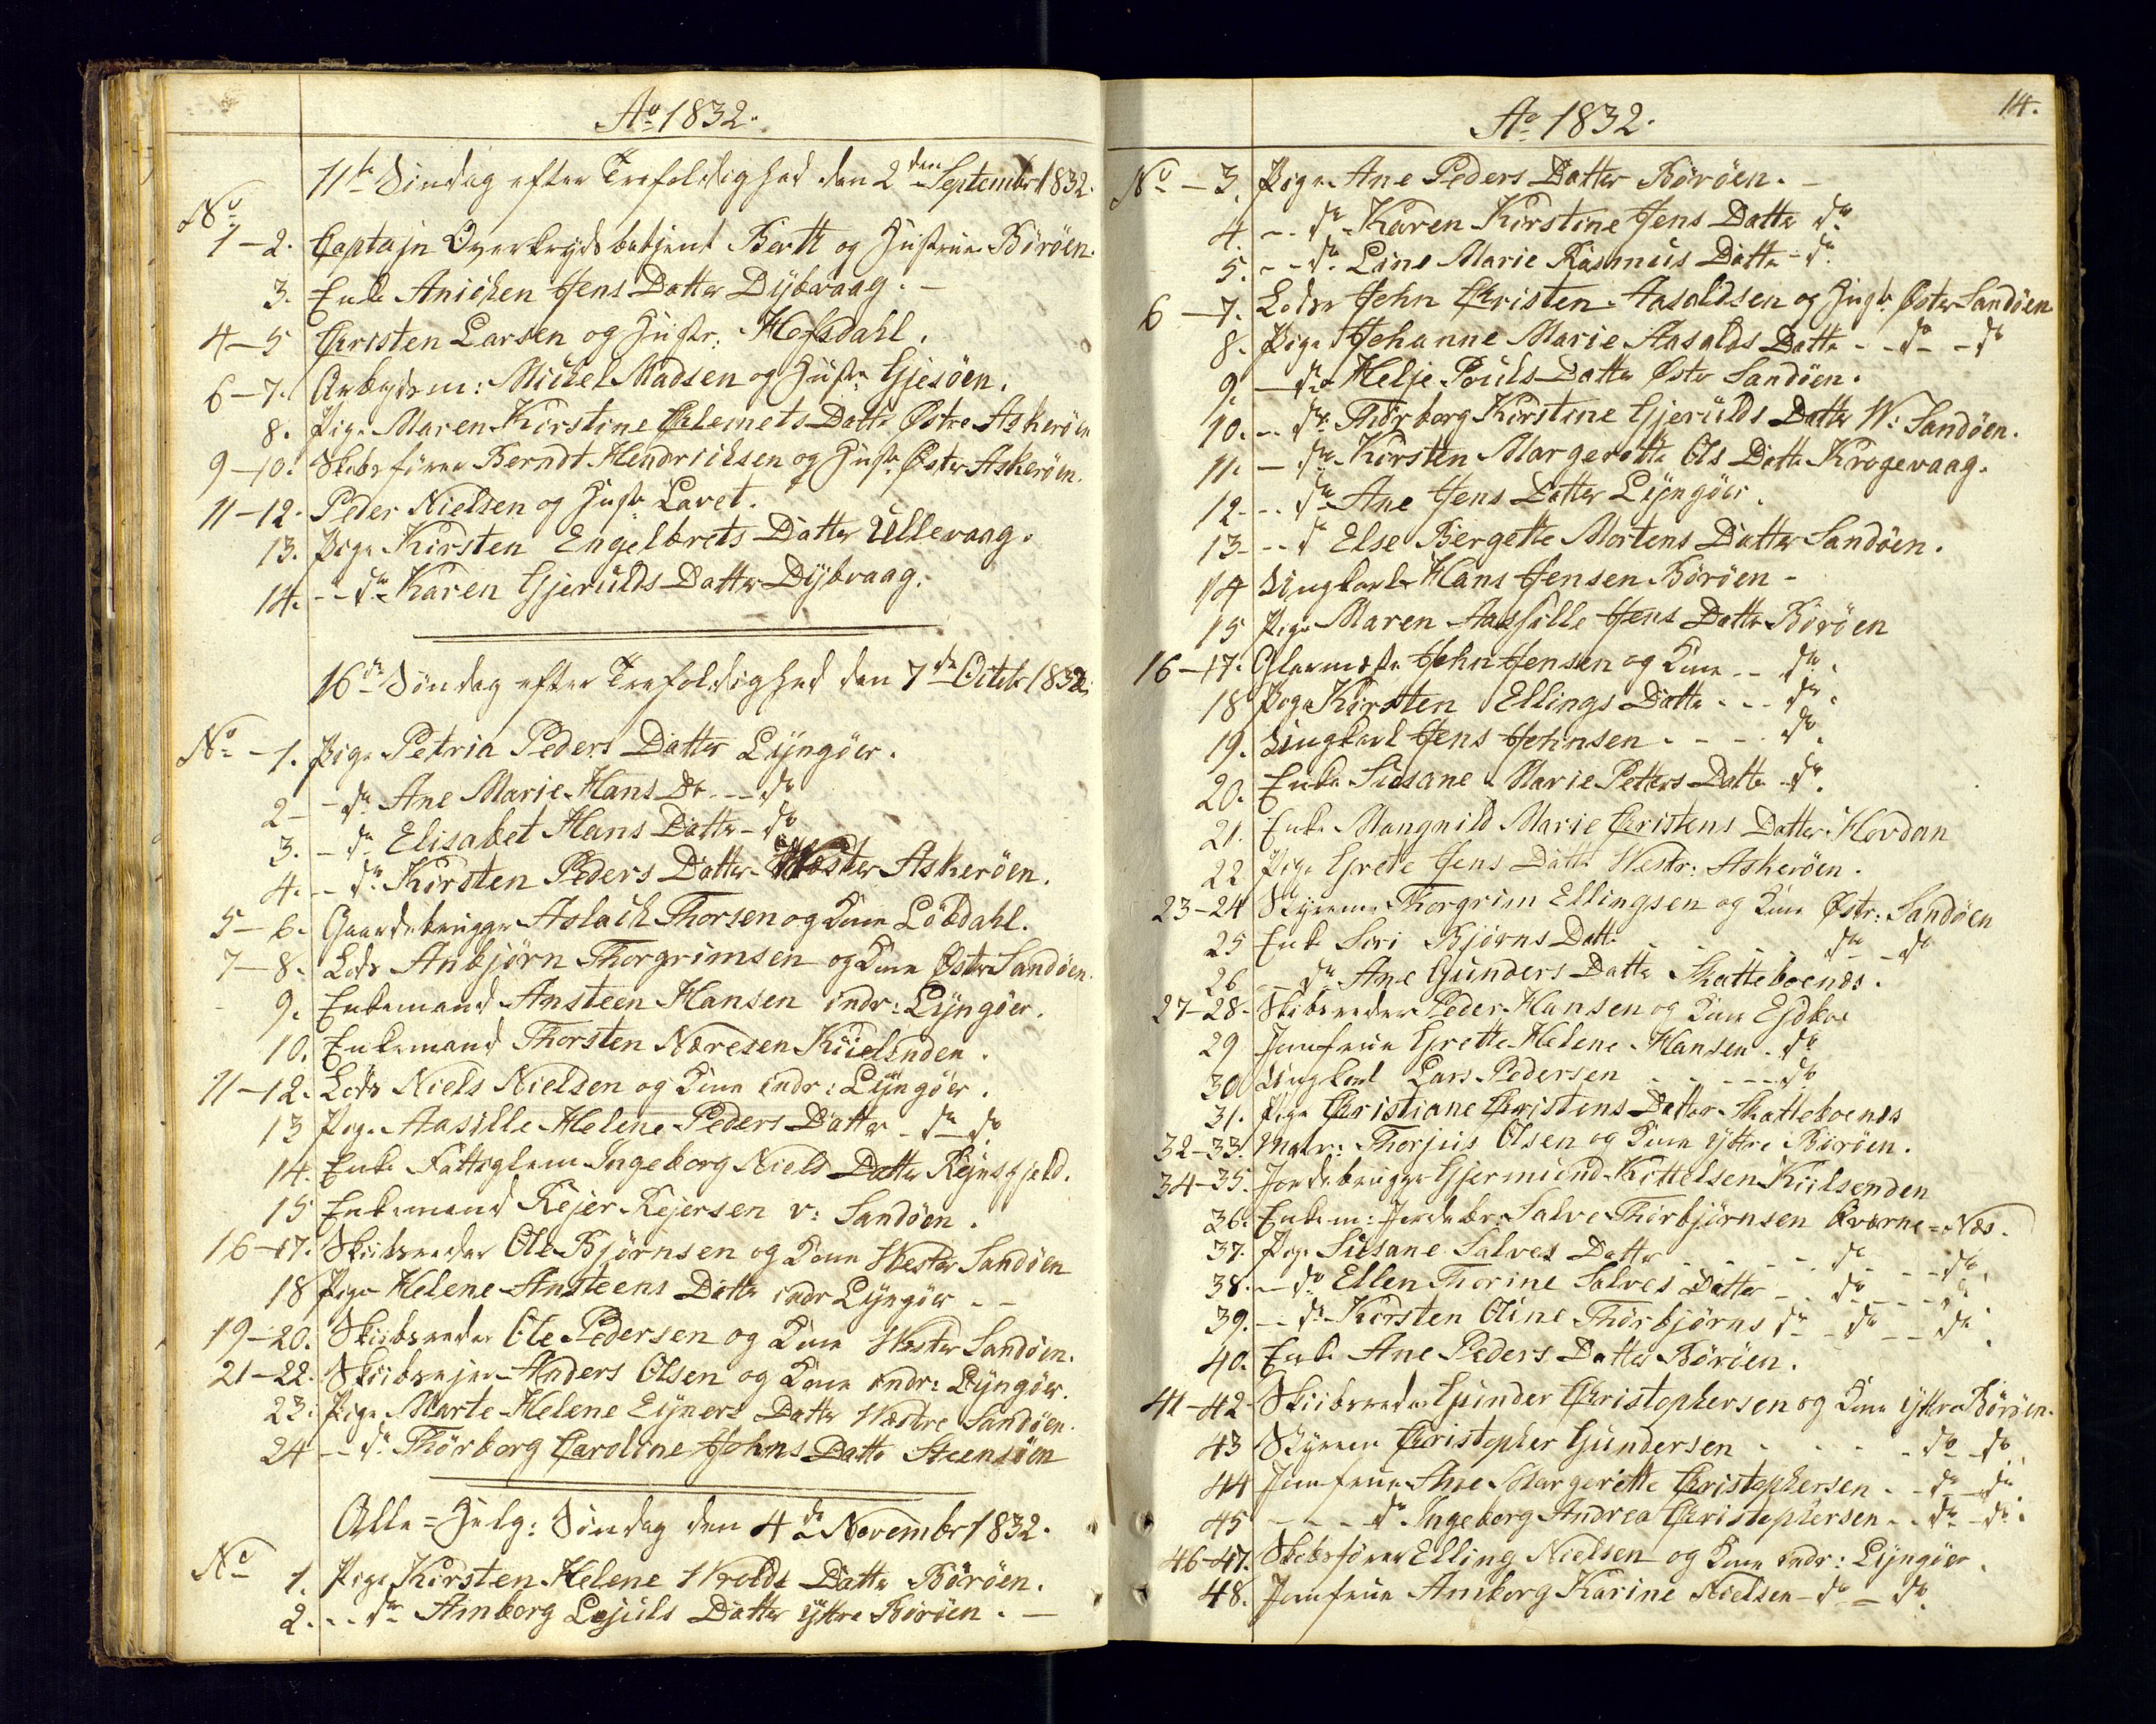 Ao 1832.
11te Söndag efter Trefoldighed den 2den Septembr 1832.
No
1-2. Captajn Overkrydsbetjent Bertt og Hustrue Böröen.
3. Enke Anichen Jens Datter Dÿbvaag. -
4-5 Christen Larsen og Hustr. Hofsdahl.
6-7. Arbeydsm: Mickel Madsen og Hustr. Gjesöen.
8. Pige Maren Kirstine Clemets Datter Østre Askeröen
9-10. Skibsförer Berndt Hendrichsen og Hustr. Øster Askeröen.
11-12. Peder Nielsen og Hustr. Lavet.
13. Pige Kirsten Engelbrets Datter Ullevaag.
14. -- do Karen Gjerulds Datter Dÿbvaag.
16de Söndag efter Trefoldighed den 7de Octobr 1832.
No - 1. Pige Petria Peders Datter Lÿngöer.
2 - do Ane Marie Hans Dr. -- do
3. - do Elisabet Hans Datter - do
4. -- do Kirsten Peders Datter Wester Askeröen.
5-6. Gaardsbrugger Aslach Thorsen og Kone Löbdahl.
7-8. Lods Anbjörn Thorgrimsen og Kone Østr Sandöen.
9. Enkemand Ansteen Hansen indr: Lÿngöer.
10. Enkemand Thorsten Næresen Kiielsnden.
11-12. Lods Niels Nielsen og Kone indr: Lÿngöer.
13 Pige Aasille Helene Peders Datter - do - do
14. Enke Fattiglem Ingeborg Niels Datter Rejnsfjeld.
15 Enkemand Rejer Rejersen v: Sandöen.
16-17. Skibsreder Ole Bjørnsen og Kone Wester Sandöen
18 Pige Helene Ansteens Datter indr Lÿngöer --
19-20. Skibsreder Ole Pedersen og Kone Wester Sandöen.
21-22. Skibsejer Anders Olsen og Kone indr: Lÿngöer.
23. Pige Marte Helene Eÿners Datter Westre Sandöen.
24 -- do Thörborg Caroline Johns Datter Steensöen
Alle=Helg: Söndag den 4de Novembr 1832.
No 1. Pige Kirsten Helene Wrolds Datter Böröen.
2. -- do Amborg Lejuls Datter ÿttre Böröen. -
14.
Ao 1832.
No - 3. Pige Ane Peders Datter Böröen. -
4. -- do Karen Kirstine Jens Datter do
5. -- do Line Marie Rasmus Datter do
6-7. Lods John Christen Aasoldsen og Hustr. Øster Sandöen
8. Pige Johanne Marie Aasolds Datter -- do - do
9. - do Helje Pouls Datter Østr Sandöen.
10. -- do Thörborg Kirstine Gjerulds Datter W: Sandöen.
11. - do Kirsten Margerette Ols Datter Krogevaag.
12. -- do Ane Jens Datter Lÿngöer.
13 -- do Else Bergette Mortens Datter Sandöen.
14 Ungkarl Hans Jensen Böröen -
15 Pige Maren Aasille Jens Datter Böröen
16-17. Glarmester John Jensen og Kone -- do.
18 Pige Kirsten Ellings Datter --- do.
19. Ungkarl Jens Johnsen - - - do.
20. Enke Susane Marie Petters Datter do.
21. Enke Mangnild Marie Christens Datter Hovdan
22 Pige Grete Jens Datter Westr: Askeröen.
23-24 Styrmand Thorgrim Ellingsen og Kone Østr: Sandöen
25 Enke Siri Bjørns Datter - - - do - do
26 -- do Ane Gunders Datter Skatteboends.
27-28. Skibsreder Peder Hansen og Kone Ejdboe
29 Jomfrue Grette Helene Hansen - do
30 Ungkarl Lars Pedersen - - - - do
31. Pige Christiane Christens Datter Skatteboends
32-33. Matr: Thorjus Olsen og Kone ÿttre Böröen.
34-35. Jordbrugger Gjermund Kittelsen Kiilsenden
36. Enkem: Jordbr: Salve Thorbjörnsen Kværne=Næs.
37. Pige Susane Salves Datter - - - - do - - do.
38. -- do Ellen Thorine Salves Datter -- do - - - do
39. -- do Kirsten Oline Thörbjörns do - do - - do.
40. Enke Ane Peders Datter Böröen.
41-42 Skibsreder Gunder Christophersen og Kone ÿttre Böröen.
43 Styrmand Christopher Gundersen - - - - do - do
44 Jomfrue Ane Margerette Christophersen - - do - do
45 - - - do Ingeborg Andrea Christophersen -- do - do.
46-47. Skibsförer Elling Nielsen og Kone indr: Lÿngöer.
48. Jomfrue Amborg Karine Nielsen - do = do.